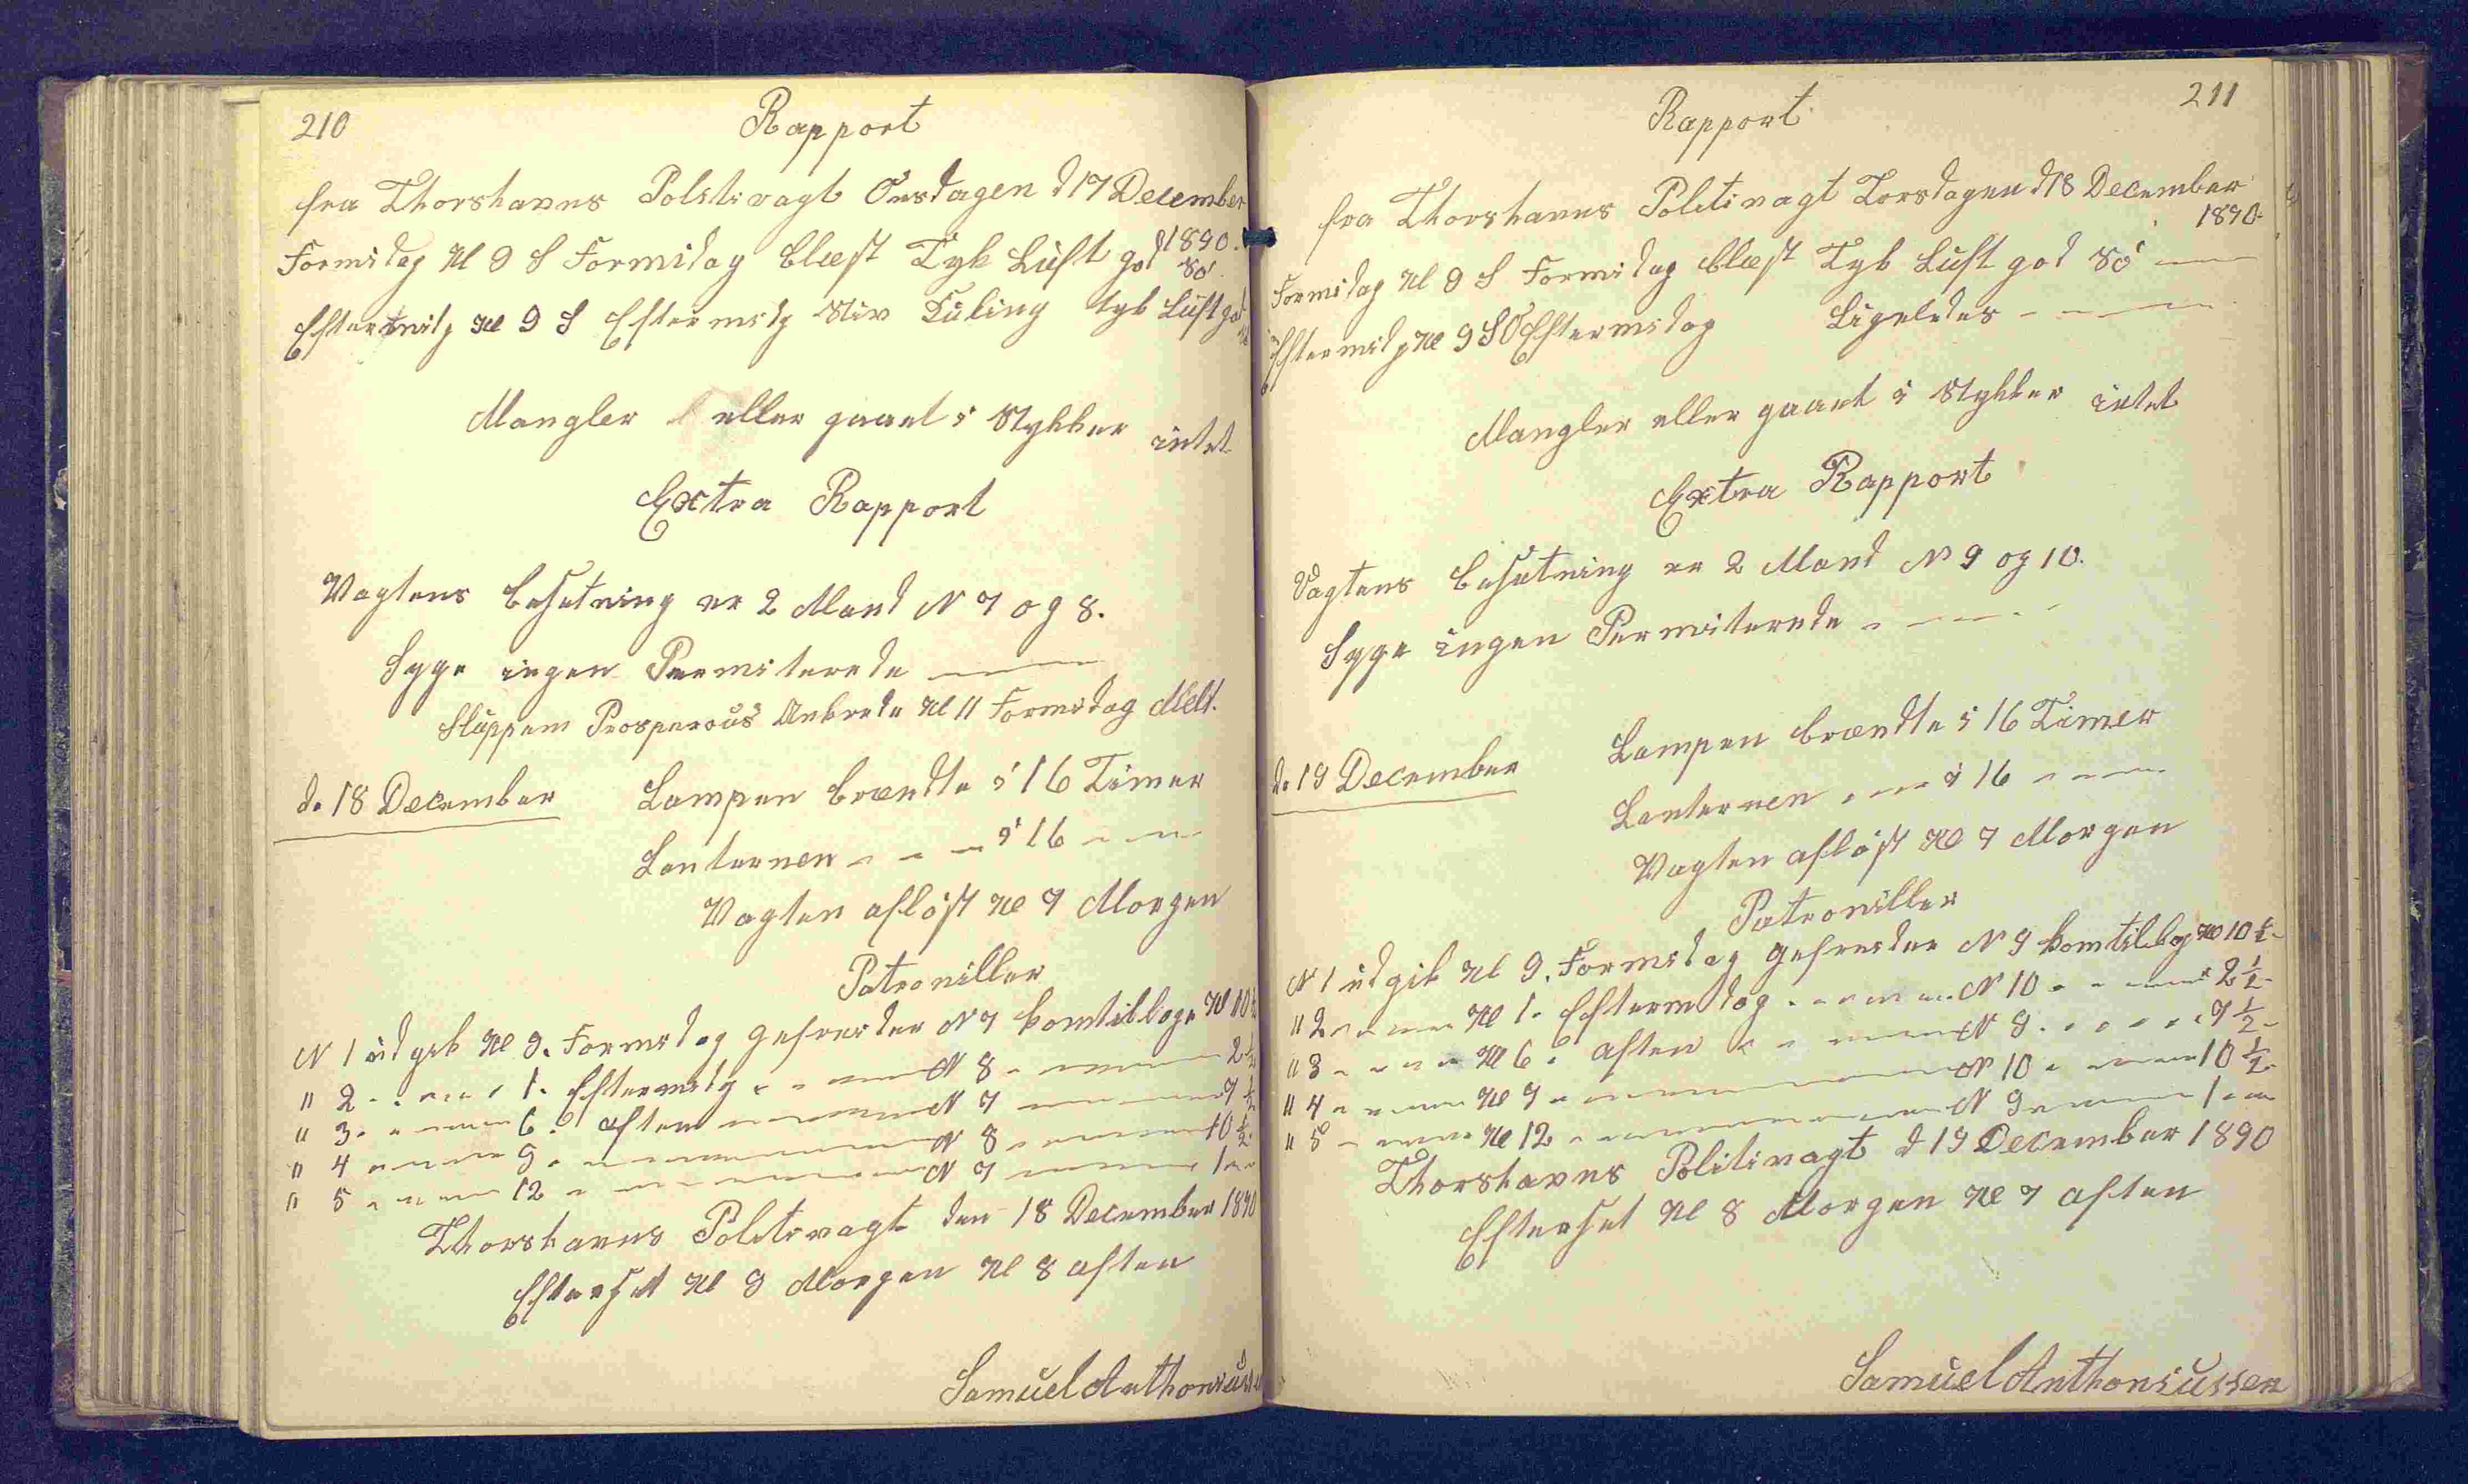 210
Rapport
fra Thorshavns Politivagt Onsdagen d 17 December
1890.
Formidag Kl 9 S Formidag blæst Tyk Luft god Sö
Eftermidg Kl 9 S Eftermidg Stiv Kuling tyk Luft god
Mangler eller gaaet i Stykker intet
Extra Rapport
Vagtens besetning er 2 Mand N 7 og 8.
Syge ingen Permiterede
Sluppem Prosperous Ankrede Kl 11 Formidag Meldt.
d. 18 December
Lampen brændte i 16 Timer
Lanternen - - - i 16 - - -
Vagten aflöst Kl 7 Morgen
Patroniller
N 1 udgik Kl 9. Formidag Gefreider N 7 kom tilbage Kl 10½
" 2 - - - - 1. Eftermidg - - - N 8 - - - 2½
" 3 - - - - 6. aften - - - N 7 - - - 7½
" 4 - - - - 9 - - - - N 8 - - - 10½
" 5 - - - - 12 - - - - N 7 - - - 1 - -
Thorshavns Politivagt den 18 December 1890
Efterset Kl 9 Morgen Kl 8 aften
Samuel Anthoniusse
211
Rapport
fra Thorshavns Politivagt Torsdagen d 18 December
1890
Formidag Kl 9 S Formidag blæst Tyk Luft god Sö
Eftermidg Kl 9 SO Eftermidag Ligeledes - - -
Mangler eller gaaet i Stykker intet
Extra Rapport
Vagtens besætning er 2 Mand N 9 og 10.
Syge ingen Permiterede - - -
d. 19 December
Lampen brændte i 16 Timer
Lanternen - - - i 16 - - -
Vagten aflöst Kl 7 Morgen
Patroniller
N 1 udgik Kl 9. Formidag Gefreider N 9 kom tilbag Kl 10½
" 2 - - - Kl 1. Eftermidag - - - N 10 - - - 2½
" 3 - - - Kl 6. aften - - - N 9 - - - 7½
" 4 - - - Kl 9 - - - - N 10 - - - 10½
" 5 - - - Kl 12 - - - - N 9 - - - 1 - -
Thorshavns Politivagt d 19 December 1890
Efterset Kl 8 Morgen Kl 7 aften
Samuel Anthoniussen